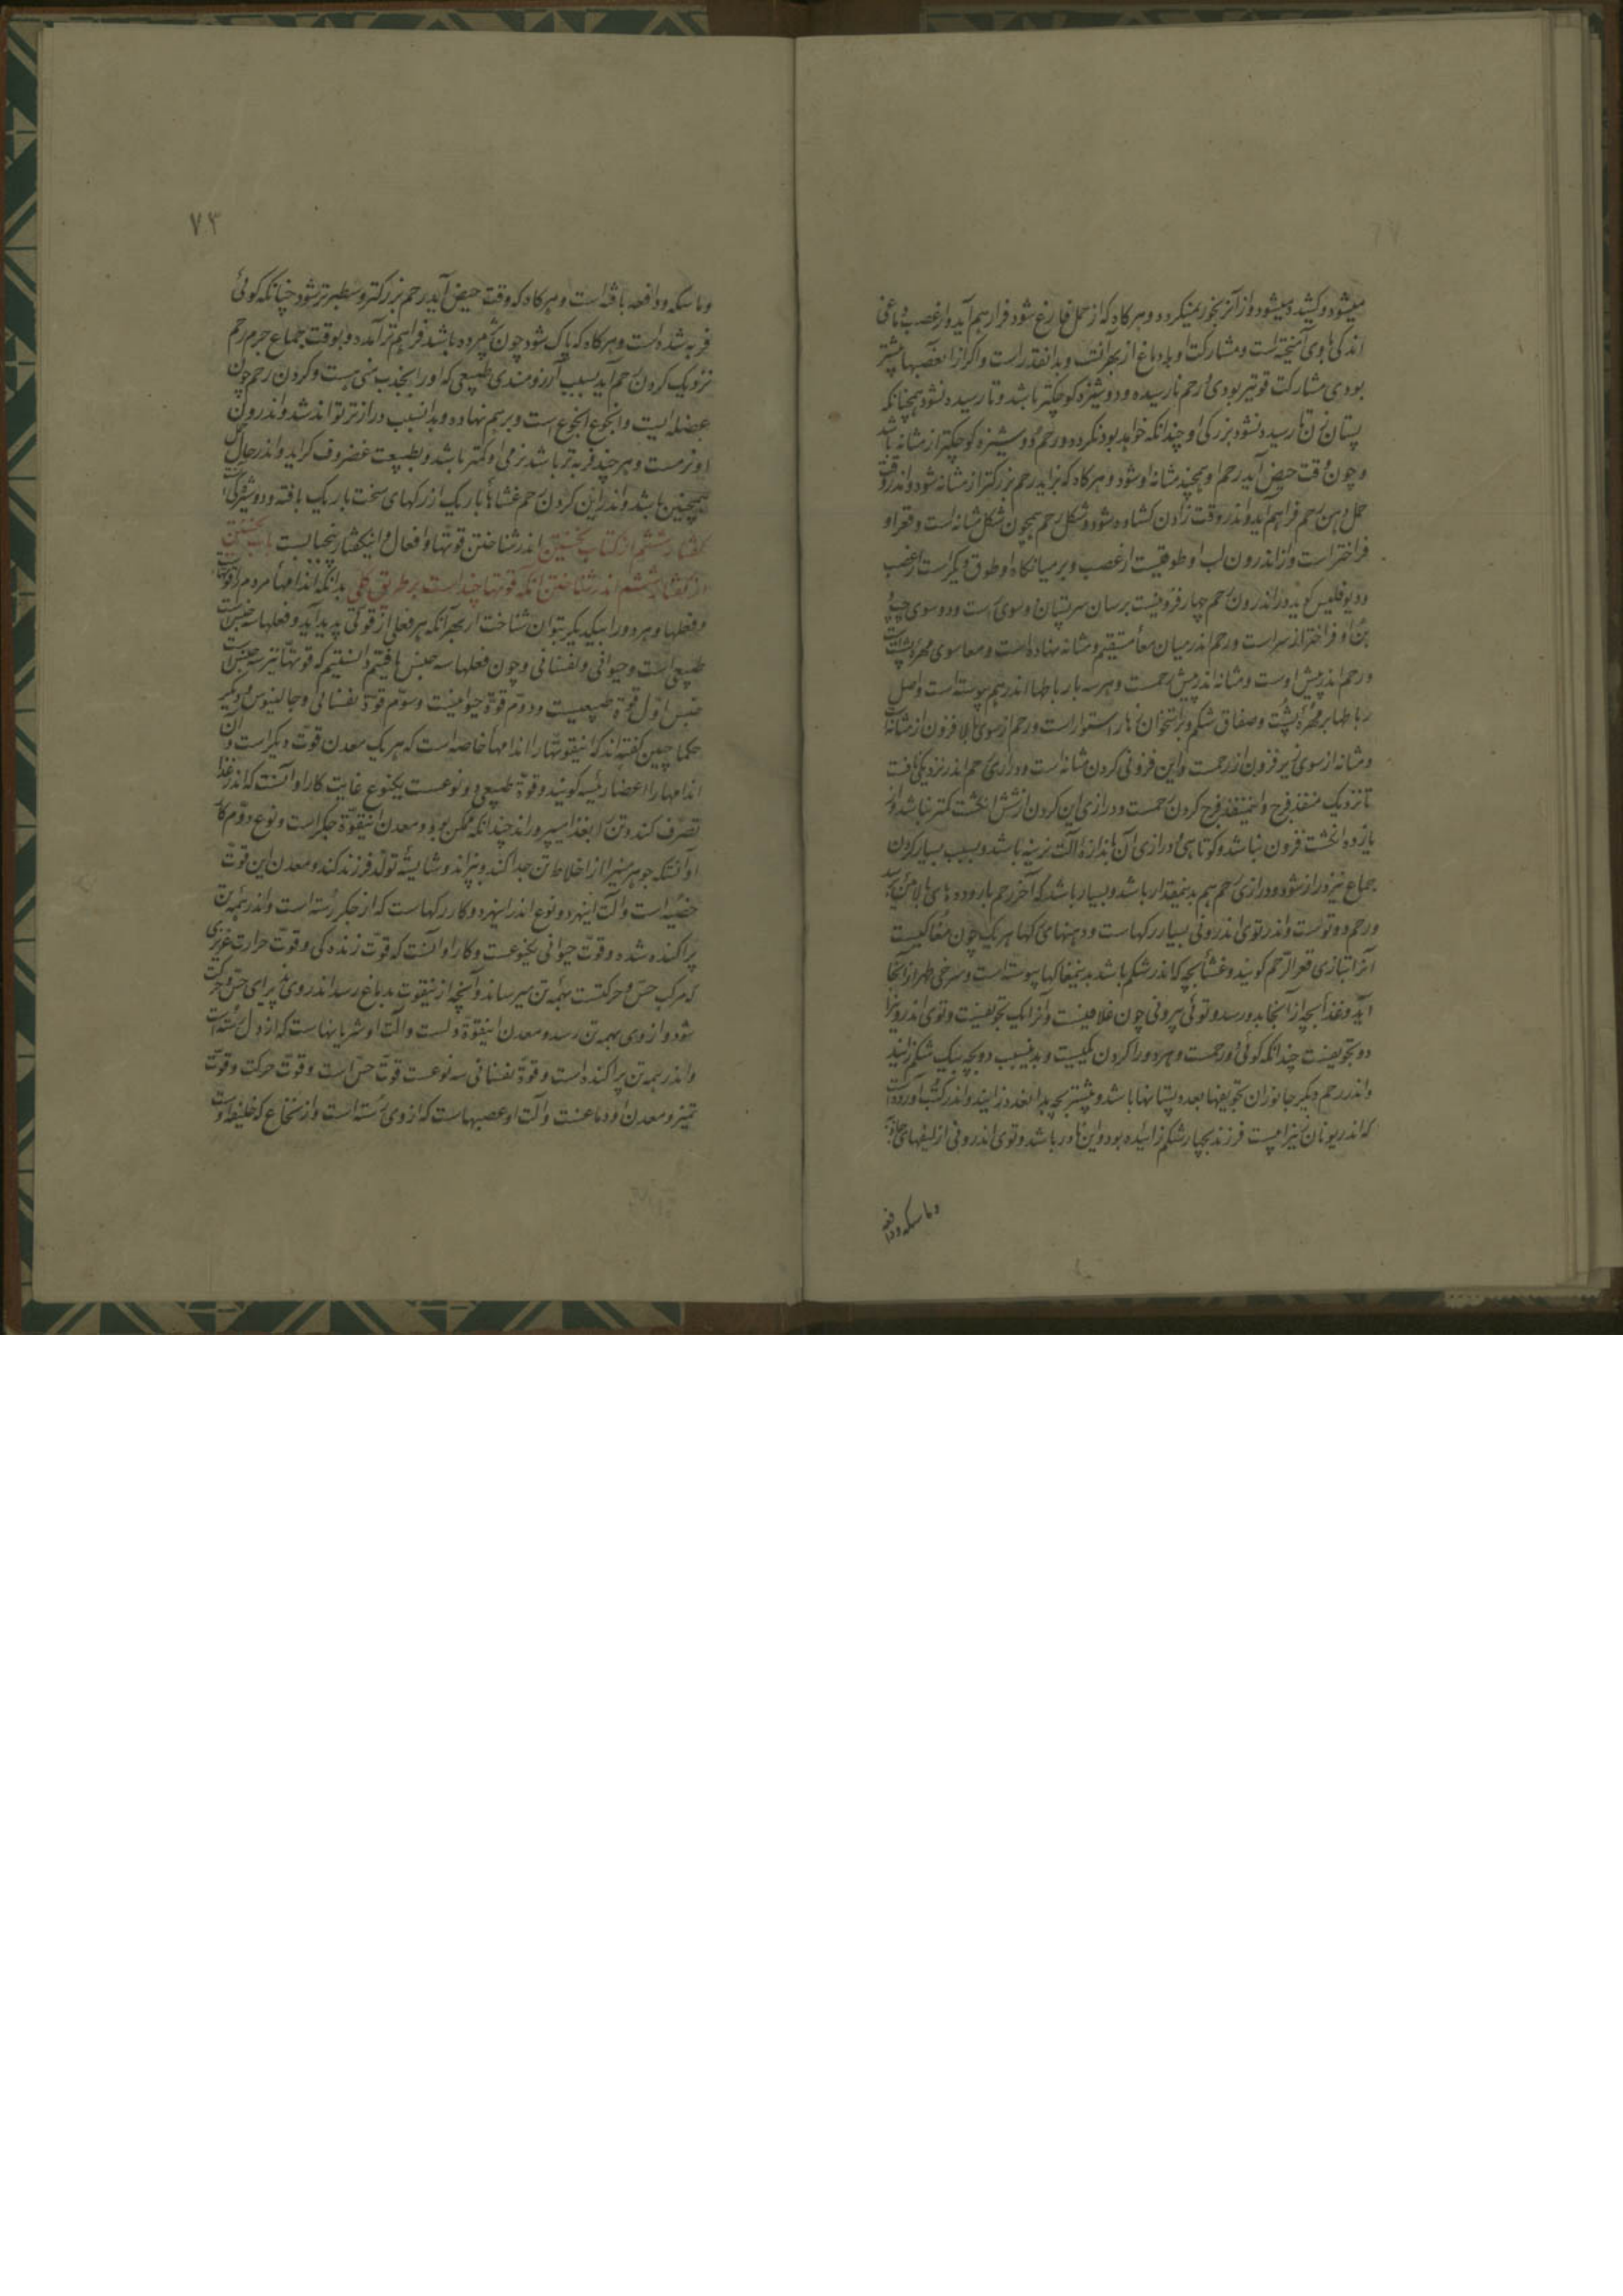 میشود و کشیده میشود و از آن رنجور نمیکردد و هرکاه که از حمل فارغ شود فراز هم آید و از عصب دماغی
اندکی با وی آمیخته است و مشارکت او با دماغ از بهر آنست و بدانقدر است و اکر از آن عصبها بیشتر
بودی مشارکت قویتر بودی و رحم نارسیده و دوشیزه کوچکتر باشد و تا رسیده نشود همچنانکه
پستان زن تا رسیده نشود بزرکی او چندانکه خواهد بود نکردد و رحم دوشیزه کوچکتر از مثانه باشد
و چون وقت حیض آید رحم او همچند مثانه او شود و هرکاه که بزاید رحم بزرکتر از مثانه شود و اندر وقت
حمل دهن رحم فراهم آید و اندر وقت زادن کشاده شود و شکل رحم همچون شکل مثانه است و قعر او
فراختر است و از اندرون لب او طوقیست از عصب و بر میانکاه او طوق دیکر است از عصب
و دیوقلیس کوید در اندرون رحم چهار فزونیست برسان سر پستان دو سوی راست و دو سوی چپ و
بن او فراختر از سر است و رحم اندر میان معاء مستقیم و مثانه نهاده است و معا سوی مهره پشت است
و رحم اندر پیش اوست و مثانه اندر پیش رحمست و هر سه بار باطها اندر هم پیوسته است و اصل
رباطها بر مهره پشت و صفاق شکم و بر استخوان زهار استوار است و رحم از سوی بالا فزون از مثانه است
و مثانه از سوی زیر فزون از رحمست و این فزونی کردن مثانه است و درازی رحم اندر نزدیکی ناف
تا نزدیک منفذ فرج و این منفذ فرج کردن رحمست و درازی این کردن از شش انکشت کمتر نباشد و از
یازده انکشت فزون نباشد و کوتاهی و درازی آن باندازه آلت نرینه باشد و بسبب بسیار کردن
جماع نیز دراز شود و درازی رحم هم بدینمقدار باشد و بسیار باشد که آخر رحم با روده های بالائین رسد
و رحم دو توست و اندر توی اندرونی بسیار رکهاست و دهنهای رکها هر یک چون مغاکیست
آنرا بتازی قعر الرحم کویند و غشاء بچه که اندر شکم باشد بدین مغاکها پیوسته است و سرخی طهر از آنجا
آید و غذا بچه از آنجا بدو رسد و توی بیرونی چون غلافیست و آنرا یک تجویفیست و توی اندرونی را
دو تجویفست چندانکه کوئی دو رحمست و هر دو را کردن یکیست و بدین سبب دو بچه بیک شکم زایند
و اندر رحم دیکر جانوران تجویفها بعدد پستانها باشد و بیشتر بچه بدان عدد زایند و اندر کتب آورده است
که اندر یونان کنیزک بیست فرزند بچهار شکم زائیده بود و این نادر باشد و توی اندرونی از لیفهای جاذبه
و ماسکه و دافعه
٧٣
و ماسکه و دافعه بافته است و هرکاه که وقت حیض آید رحم بزرکتر و سطبرتر شود چنانکه کوئی
فربه شده است و هرکاه که پاک شود چون پژمرده باشد فراهم تر آمده و بوقت جماع جرم رحم
نزدیک کردن رحم آید بسبب آرزومندی طبیعی که او را بجذب منی هست و کردن رحم چون
عضله ایست و انجوغ انجوغ است و بر هم نهاده و بدانسبب درازتر تواند شد و اندرون
او نرمست و هر چند فربه تر باشد نرمی او کمتر باشد و بطبیعت غضروف کراید و اندر حال حمل
همچنین باشد و اندر این کردن رحم غشاها باریک از رکهای سخت باریک بافته و دوشیزکی است
کفتار ششم از کتاب نخستین اندر شناختن قوتها و افعال و اینکفتار پنجبابست باب نخستین
از کفتار ششم اندر شناختن آنکه قوتها چند است بر طریق کلی بدانکه اندامهاء مردم را قوتهاست
و فعلها و هر دو را بیکدیکر بتوان شناخت از بهر آنکه هر فعلی از قوتی پدید آید و فعلها سه جنس است
طبیعی است و حیوانی و نفسانی و چون فعلها سه جنس یافتیم دانستیم که قوتها نیز سه جنس است
جنس اول قوة طبیعیست و دوم قوة حیوانیست و سوم قوة نفسانی و جالینوس و دیکر
حکما چنین کفته اند که اینقوتها را اندامهاء خاصه است که هر یک معدن قوت دیکر است و آن
اندامها را اعضاء رئیسه کویند و قوة طبیعی دو نوعست یکنوع غایت کار او آنست که اندر غذا
تصرف کند و تن را بغذا میپروراند چندانکه ممکن بود و معدن اینقوة جکر است و نوع دوم کار
او آنستکه جوهر منی را از اخلاط تن جدا کند و بپزاند و شایسته تولد فرزند کند و معدن این قوت
خصیه است و آلت اینهر دو نوع اندر اینهر دو کار رکهاست که از جکر رسته است و اندر همه تن
پراکنده شده و قوت حیوانی یکنوعست و کار او آنست که قوت زنده کی و قوت حرارت غریزی
که مرکب حس و حرکتست بهمه تن میرساند و آنچه از اینقوت بدماغ رسد اندر وی پذیرای حس و حرکت
شود و از وی بهمه تن رسد و معدن اینقوة دلست و آلت او شریانهاست که از دل رسته است
و اندر همه تن پراکنده است و قوة نفسانی سه نوعست قوت حس است و قوت حرکت و قوت
تمیز و معدن او دماغست و آلت او عصبهاست که از وی رسته است و از نخاع که خلیفه اوست